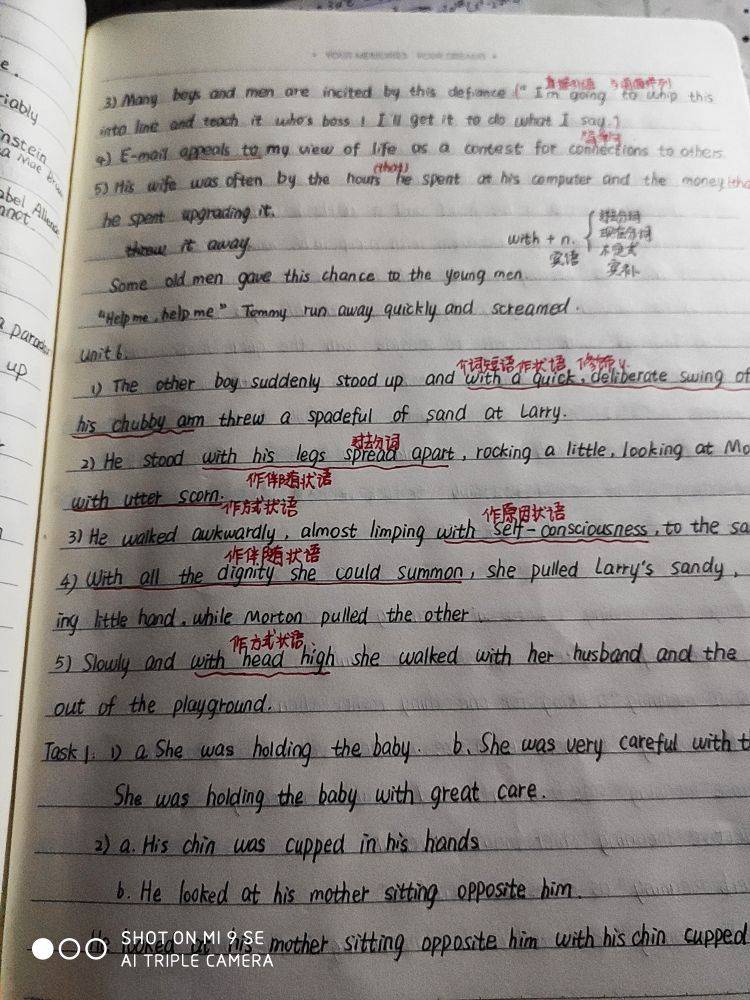 YOUR MEMORIES YOUR DREAMS
直接引语 与前面并列
3) Many boys and men are incited by this defiance (" I'm going to whip this
into line and teach it who's boss ! I'll get it to do what I say.")
4) E-mail appeals to my view of life as a contest for connections to others
(that)
5) His wife was often by the hours he spent at his computer and the money (tha
he spent upgrading it.
throw it away.
with + n.
宾语
过去分词
现在分词
不定式
宾补
Some old men gave this chance to the young men
"Help me, help me" Tommy run away quickly and screamed.
Unit 6.
介词短语作状语 修饰 v.
1) The other boy suddenly stood up and with a quick, deliberate swing of
his chubby arm threw a spadeful of sand at Larry.
过去分词
2) He stood with his legs spread apart, rocking a little, looking at Mo
作伴随状语
with utter scorn.
作方式状语 作原因状语
3) He walked awkwardly, almost limping with self-consciousness, to the sa
作伴随状语
4) With all the dignity she could summon, she pulled Larry's sandy,
ing little hand, while Morton pulled the other
作方式状语
5) Slowly and with head high she walked with her husband and the
out of the playground.
Task 1. 1) a. She was holding the baby. b. She was very careful with t
She was holding the baby with great care.
2) a. His chin was cupped in his hands
b. He looked at his mother sitting opposite him.
He looked at his mother sitting opposite him with his chin cupped
SHOT ON MI 9 SE
AI TRIPLE CAMERA
e.
riably
instein
a Mae Br
abel Allende
nnot.
a parado
up